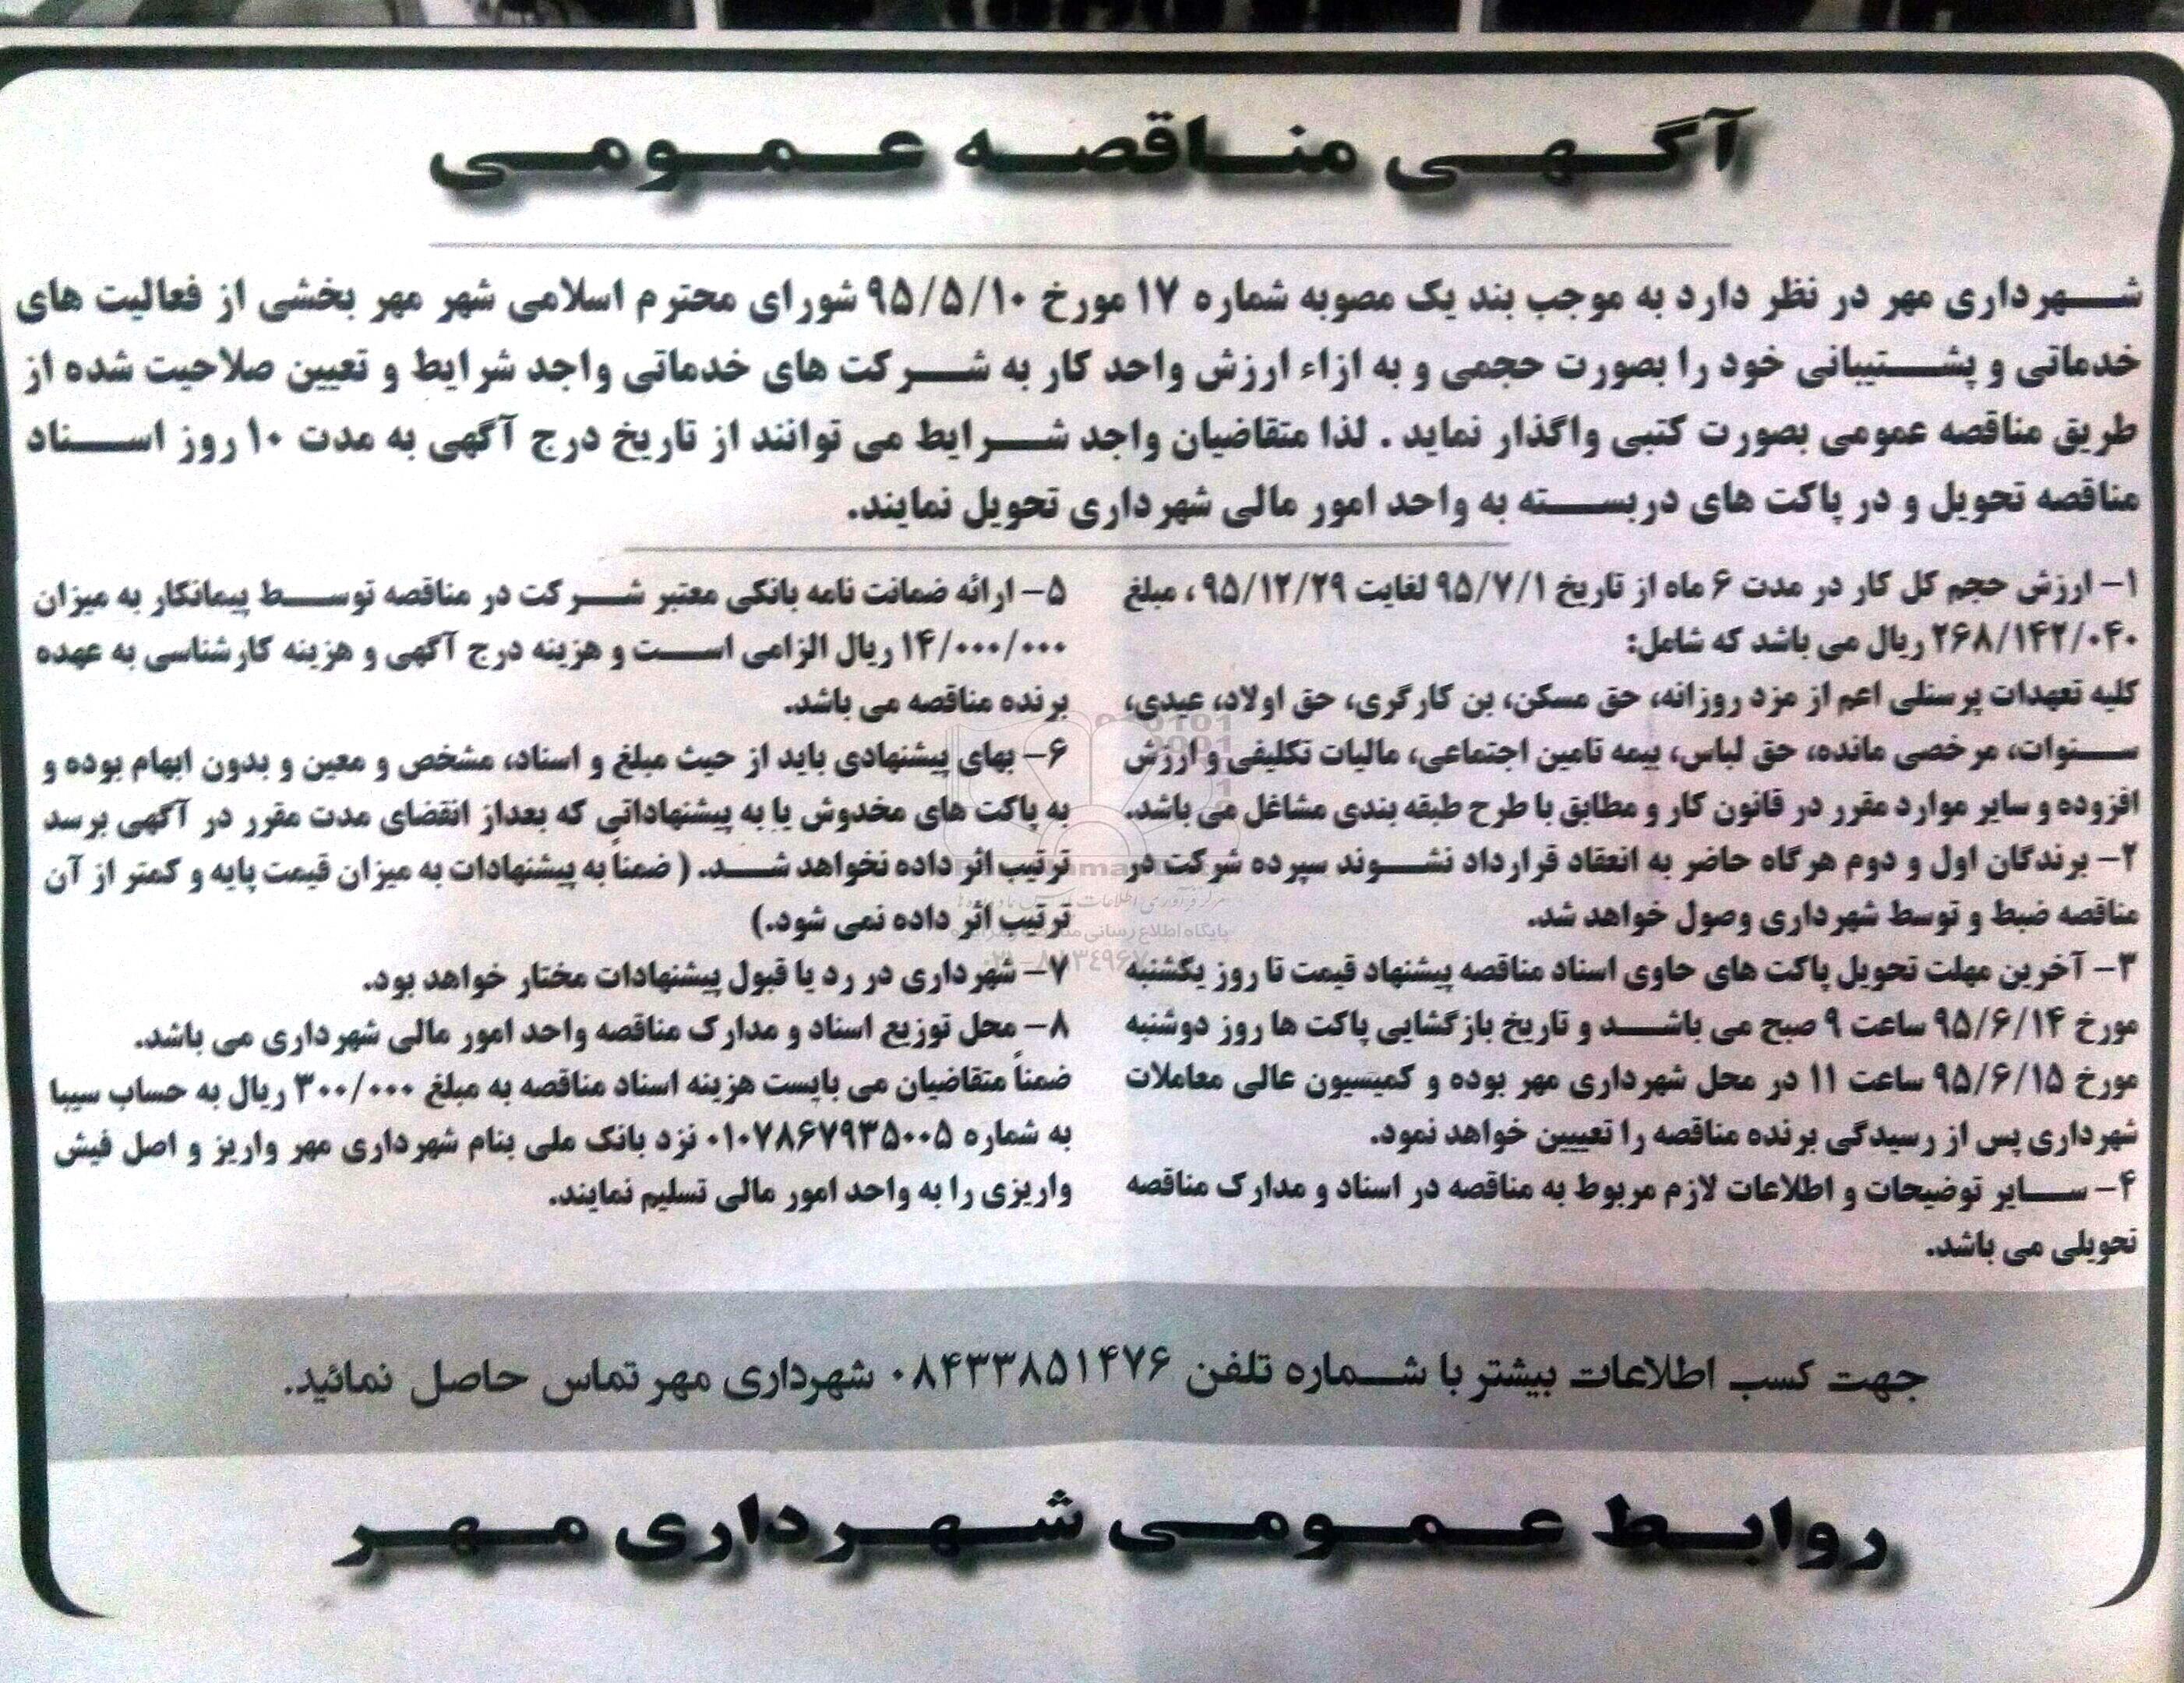 آگهی مناقصه عمومی
شهرداری مهر در نظر دارد به موجب بند یک مصوبه شماره ۱۷ مورخ ۹۵/۵/۱۰ شورای محترم اسلامی شهر مهر بخشی از فعالیت های
خدماتی و پشتیبانی خود را بصورت حجمی و به ازاء ارزش واحد کار به شرکت های خدماتی واجد شرایط و تعیین صلاحیت شده از
طریق مناقصه عمومی بصورت کتبی واگذار نماید . لذا متقاضیان واجد شرایط می توانند از تاریخ درج آگهی به مدت ۱۰ روز اسناد
مناقصه تحویل و در پاکت های دربسته به واحد امور مالی شهرداری تحویل نمایند.
۱- ارزش حجم کل کار در مدت ۶ ماه از تاریخ ۹۵/۷/۱ لغایت ۹۵/۱۲/۲۹ ، مبلغ
۲۶۸/۱۴۲/۰۴۰ ریال می باشد که شامل:
کلیه تعهدات پرسنلی اعم از مزد روزانه، حق مسکن، بن کارگری، حق اولاد، عیدی،
سنوات، مرخصی مانده، حق لباس، بیمه تامین اجتماعی، مالیات تکلیفی و ارزش
افزوده و سایر موارد مقرر در قانون کار و مطابق با طرح طبقه بندی مشاغل می باشد.
۲- برندگان اول و دوم هرگاه حاضر به انعقاد قرارداد نشوند سپرده شرکت در
مناقصه ضبط و توسط شهرداری وصول خواهد شد.
۳- آخرین مهلت تحویل پاکت های حاوی اسناد مناقصه پیشنهاد قیمت تا روز یکشنبه
مورخ ۹۵/۶/۱۴ ساعت ۹ صبح می باشد و تاریخ بازگشایی پاکت ها روز دوشنبه
مورخ ۹۵/۶/۱۵ ساعت ۱۱ در محل شهرداری مهر بوده و کمیسیون عالی معاملات
شهرداری پس از رسیدگی برنده مناقصه را تعییین خواهد نمود.
۴- سایر توضیحات و اطلاعات لازم مربوط به مناقصه در اسناد و مدارک مناقصه
تحویلی می باشد.
۵- ارائه ضمانت نامه بانکی معتبر شرکت در مناقصه توسط پیمانکار به میزان
۱۴/۰۰۰/۰۰۰ ریال الزامی است و هزینه درج آگهی و هزینه کارشناسی به عهده
برنده مناقصه می باشد.
۶- بهای پیشنهادی باید از حیث مبلغ و اسناد، مشخص و معین و بدون ابهام بوده و
به پاکت های مخدوش یا به پیشنهاداتی که بعداز انقضای مدت مقرر در آگهی برسد
ترتیب اثر داده نخواهد شد. ( ضمناً به پیشنهادات به میزان قیمت پایه و کمتر از آن
ترتیب اثر داده نمی شود.)
۷- شهرداری در رد یا قبول پیشنهادات مختار خواهد بود.
۸- محل توزیع اسناد و مدارک مناقصه واحد امور مالی شهرداری می باشد.
ضمناً متقاضیان می بایست هزینه اسناد مناقصه به مبلغ ۳۰۰/۰۰۰ ریال به حساب سیبا
به شماره ۰۱۰۷۸۶۷۹۳۵۰۰۵ نزد بانک ملی بنام شهرداری مهر واریز و اصل فیش
واریزی را به واحد امور مالی تسلیم نمایند.
جهت کسب اطلاعات بیشتر با شماره تلفن ۰۸۴۳۳۸۵۱۴۷۶ شهرداری مهر تماس حاصل نمائید.
روابط عمومی شهرداری مهر